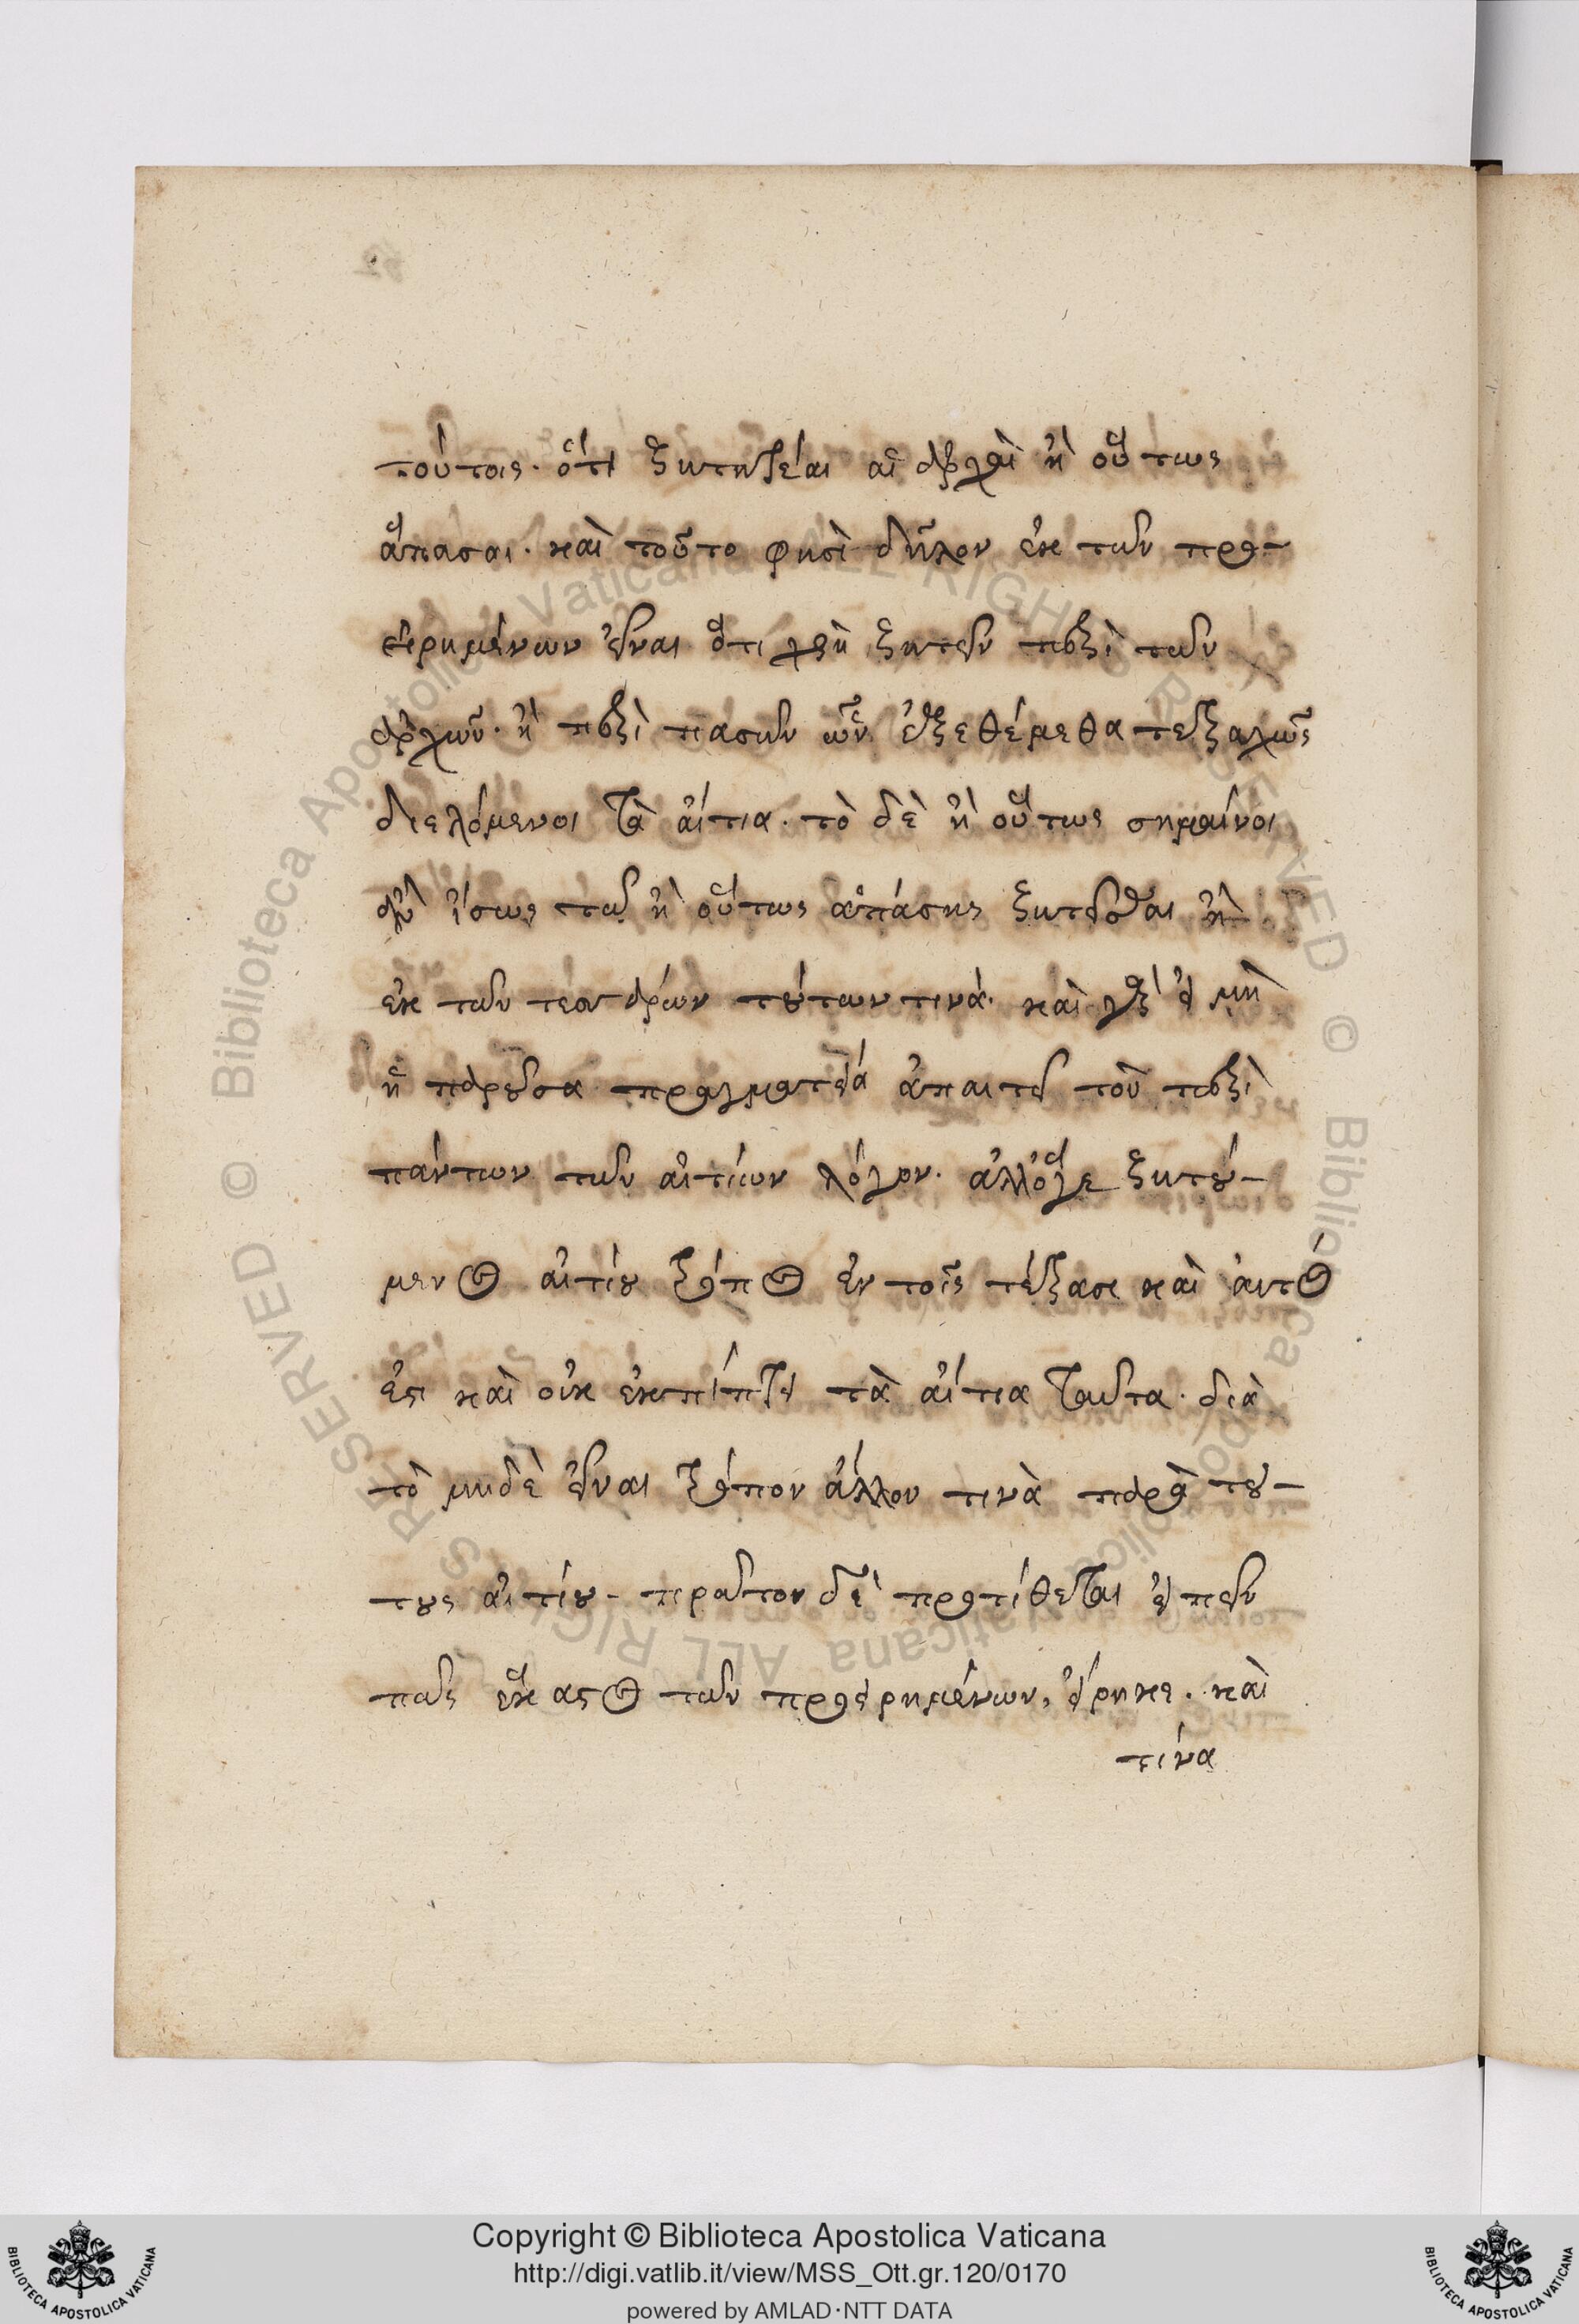 τούτοις. ὅτι ζητητέαι αἱ ἀρχαὶ ἢ οὕτως
ἅπασαι. καὶ τοῦτο φησὶ δῆλον ἐκ τῶν προ-
ειρημένων εἶναι ὅτι χρὴ ζητεῖν περὶ τῶν
ἀρχῶν. ἢ περὶ πασῶν ὧν ἐξεθέμεθα τετραχῶς
διελόμενοι τὰ αἴτια. τὸ δὲ ἢ οὕτως σημαίνοι
ἂν ἴσως τῶ ἢ οὕτως ἁπάσης ζητεῖσθαι ἢ
ἐκ τῶν τεσσάρων τούτων τινά. καὶ γὰρ εἰ μὴ
ἡ παροῦσα πραγματεία ἀπαιτεῖ τοῦ περὶ
πάντων τῶν αἰτίων λόγον. ἀλλ' ὅγε ζητού-
μενος αἰτίου τρόπος ἐν τοῖς τέτρασι καὶ αὐτός
ἐστι καὶ οὐκ ἐκπίπτει τὰ αἴτια ταῦτα. διὰ
τὸ μηδὲ εἶναι τρόπον ἄλλον τινὰ παρὰ τού-
τους αἰτίου. πρῶτον δὲ προτίθεται εἰπεῖν
πῶς ἕκαστος τῶν προειρημένων, εἴρηκε. καὶ
τίνα
Copyright © Biblioteca Apostolica Vaticana
http://digi.vatlib.it/view/MSS_Ott.gr.120/0170
powered by AMLAD·NTT DATA